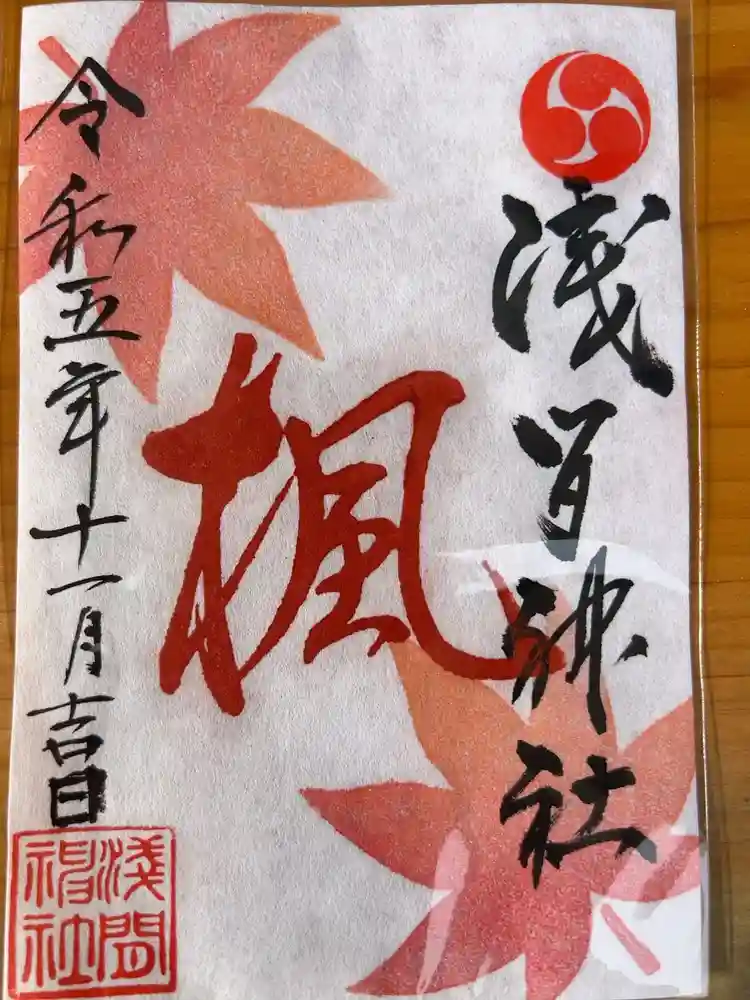 浅间神社
楓
令和五年十一月吉日
淺間
神社